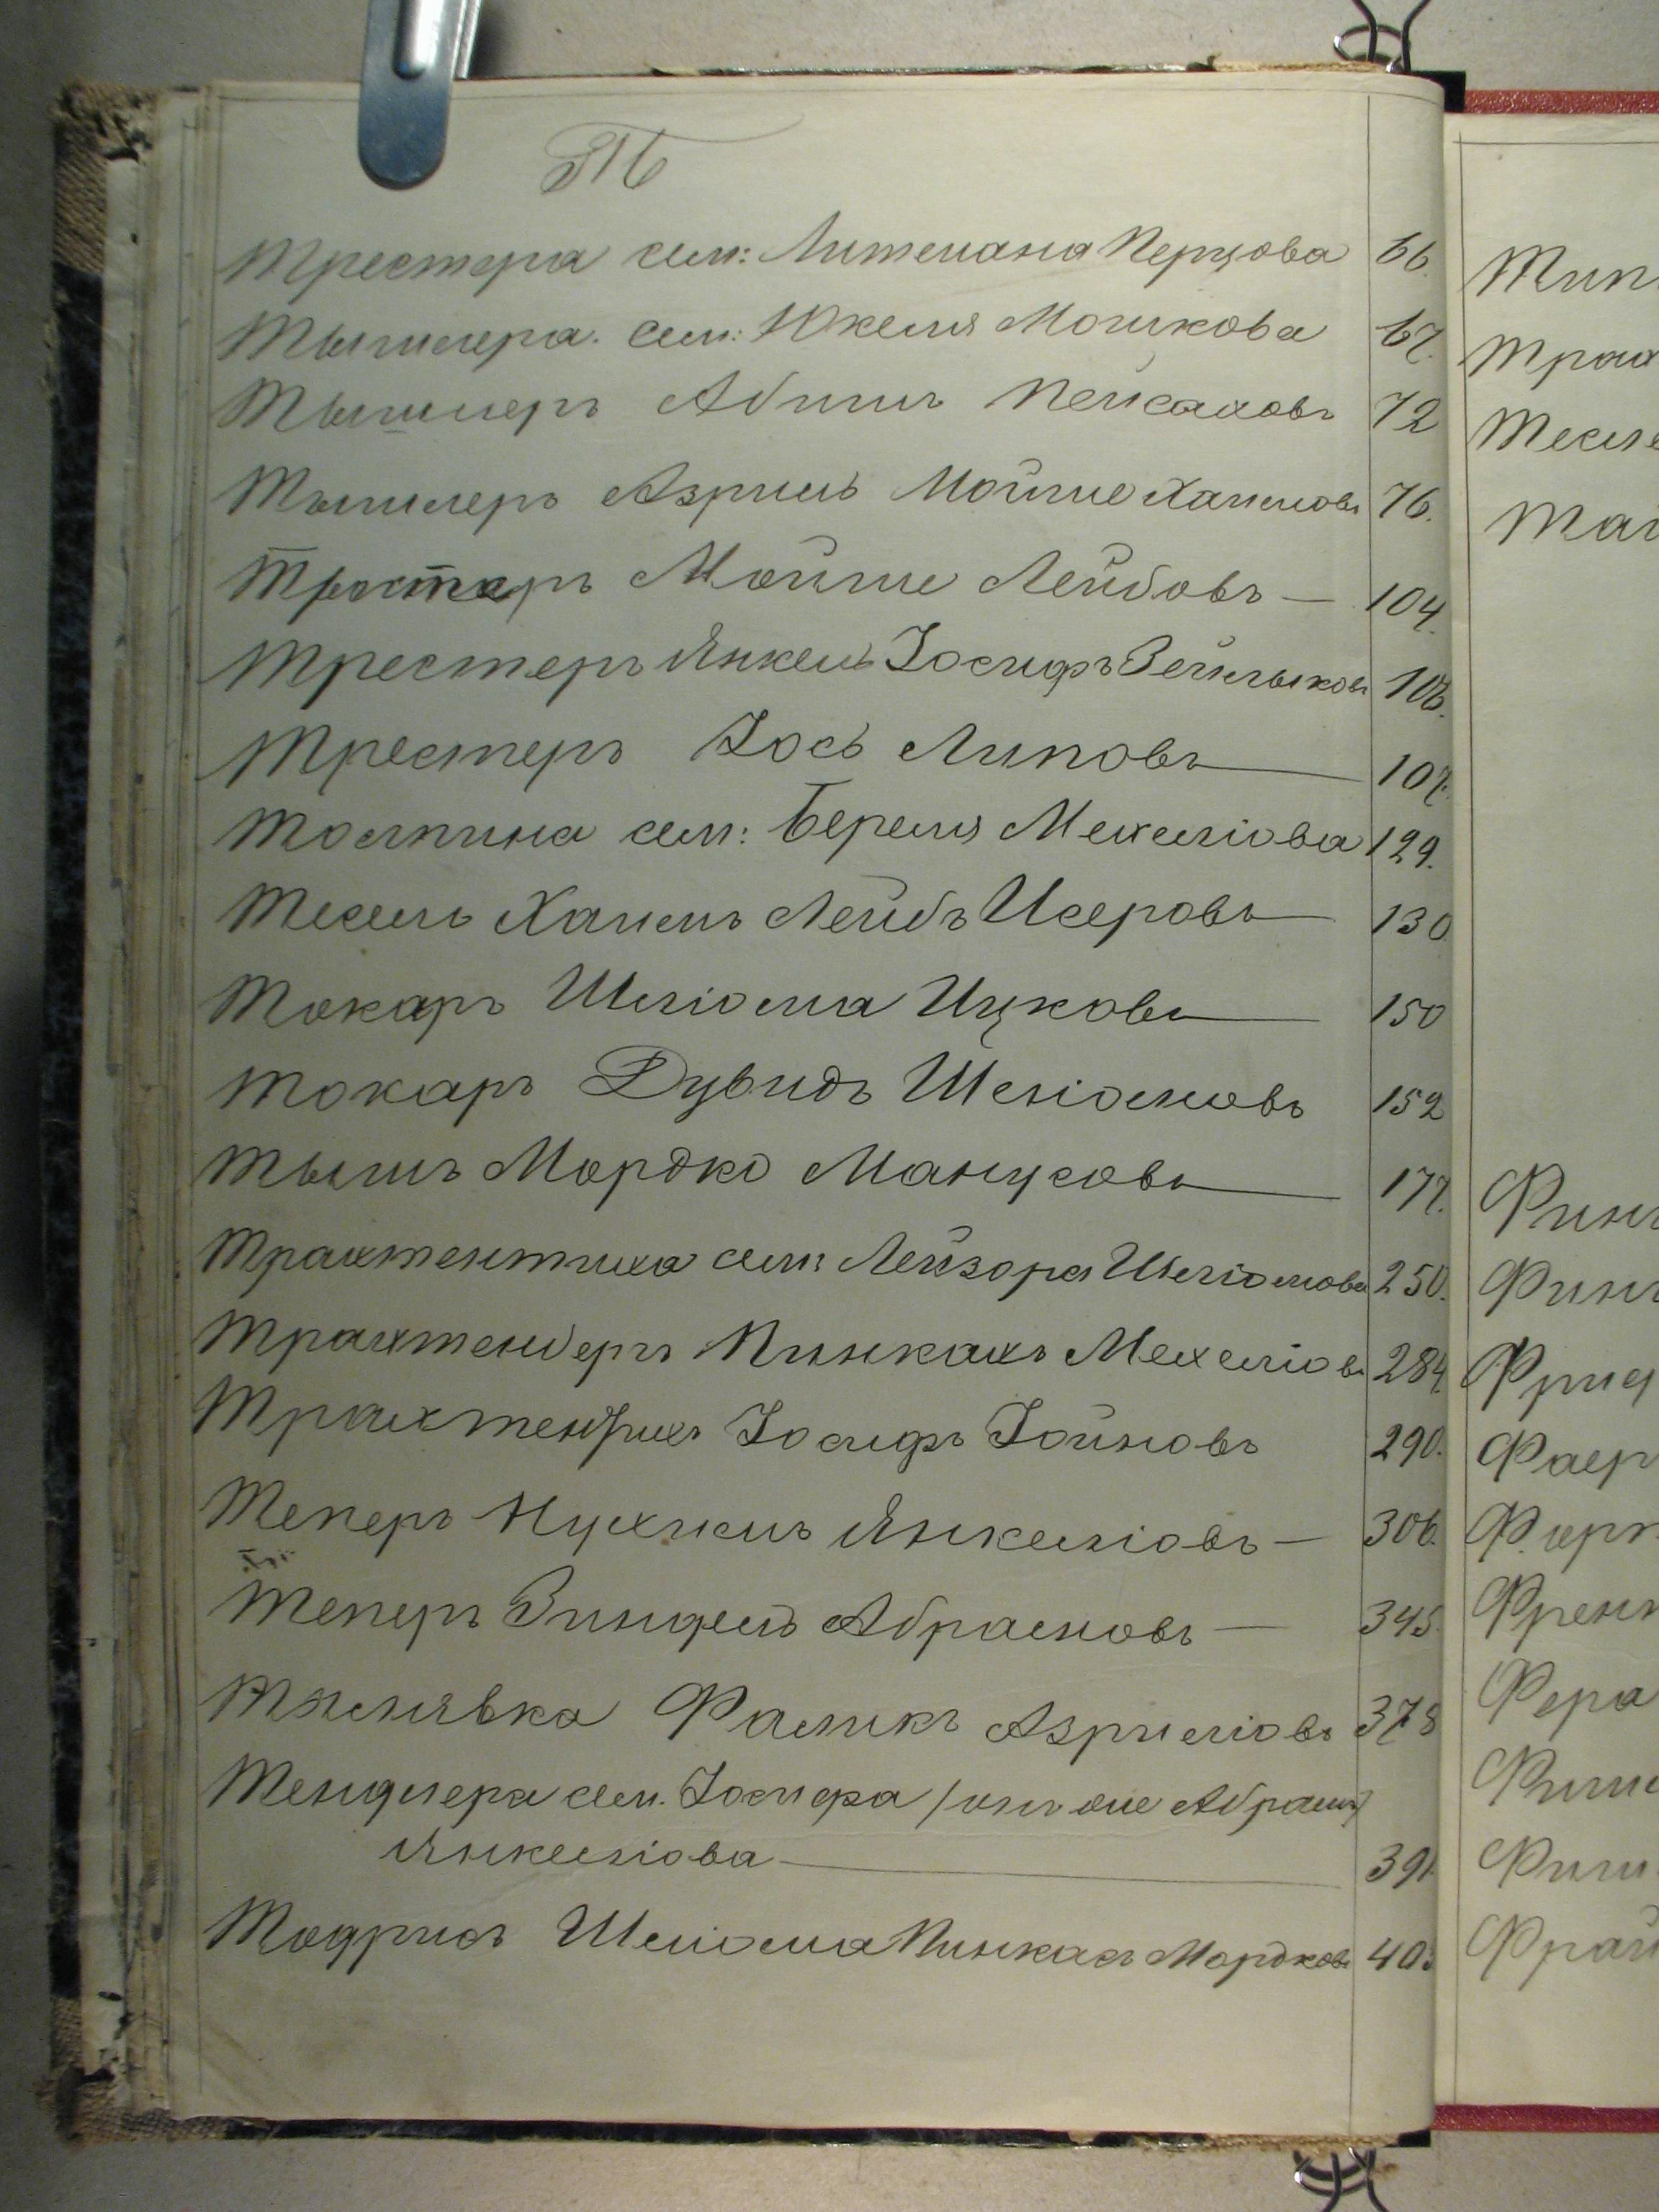 Т
Трестера сем: Литмана Перцова 66.
Тышлера. сем: Юкеля Мошкова 67.
Тышлеръ Абишъ Пейсаховъ 72
Тышлеръ Азриль Мойше Хаимовъ 76.
Трестеръ Мойше Лейбовъ — 104.
Трестеръ Янкель Іосифъ Зейлыковъ 106.
Трестеръ Іось Липовъ — 107.
Толпина сем: Береля Мехеліова 129.
Тесель Хаимъ Лейбъ Исеровъ — 130
Токаръ Шліома Ицковъ — 150
Токаръ Дувидъ Шліомовъ 152
Тышъ Мордко Манусовъ — 177.
сем: Лейзора Шліомова 250.
Пинкахъ Мехеліовъ 284.
Іосифъ Іойновъ 290.
Теперъ Нухимъ Янкеліовъ — 306.
Теперъ Зиндель Абрамовъ — 345.
Фаликъ Азриліовъ 378
Тендлера сем. Іосифа /онъ же Абрамъ/
Янкеліова — 391.
Тодрисъ Шліома Пинкасъ Мордковъ 403
Тип
Трах
Тесле
Фин
Фин
Фрид
Фаер
Френ
Фера
Фиш
Фрай